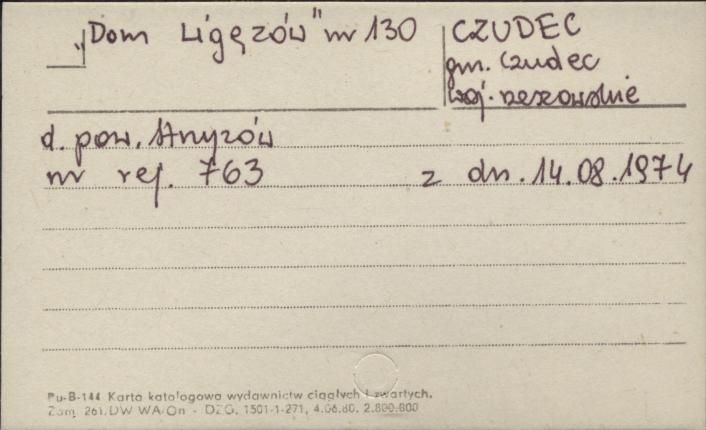 „Dom Ligęzów" nr 130
CZUDEC
gm. Czudec
woj. rzeszowskie
d. pow. Strzyżów
nr rej. 763 z dn. 14.08.1974
Pu-B-144 Karta katalogowa wydawnictw ciągłych i zwartych.
Zam. 261/DW WA/On - DZG. 1501-1-271, 4.06.80. 2.800.000